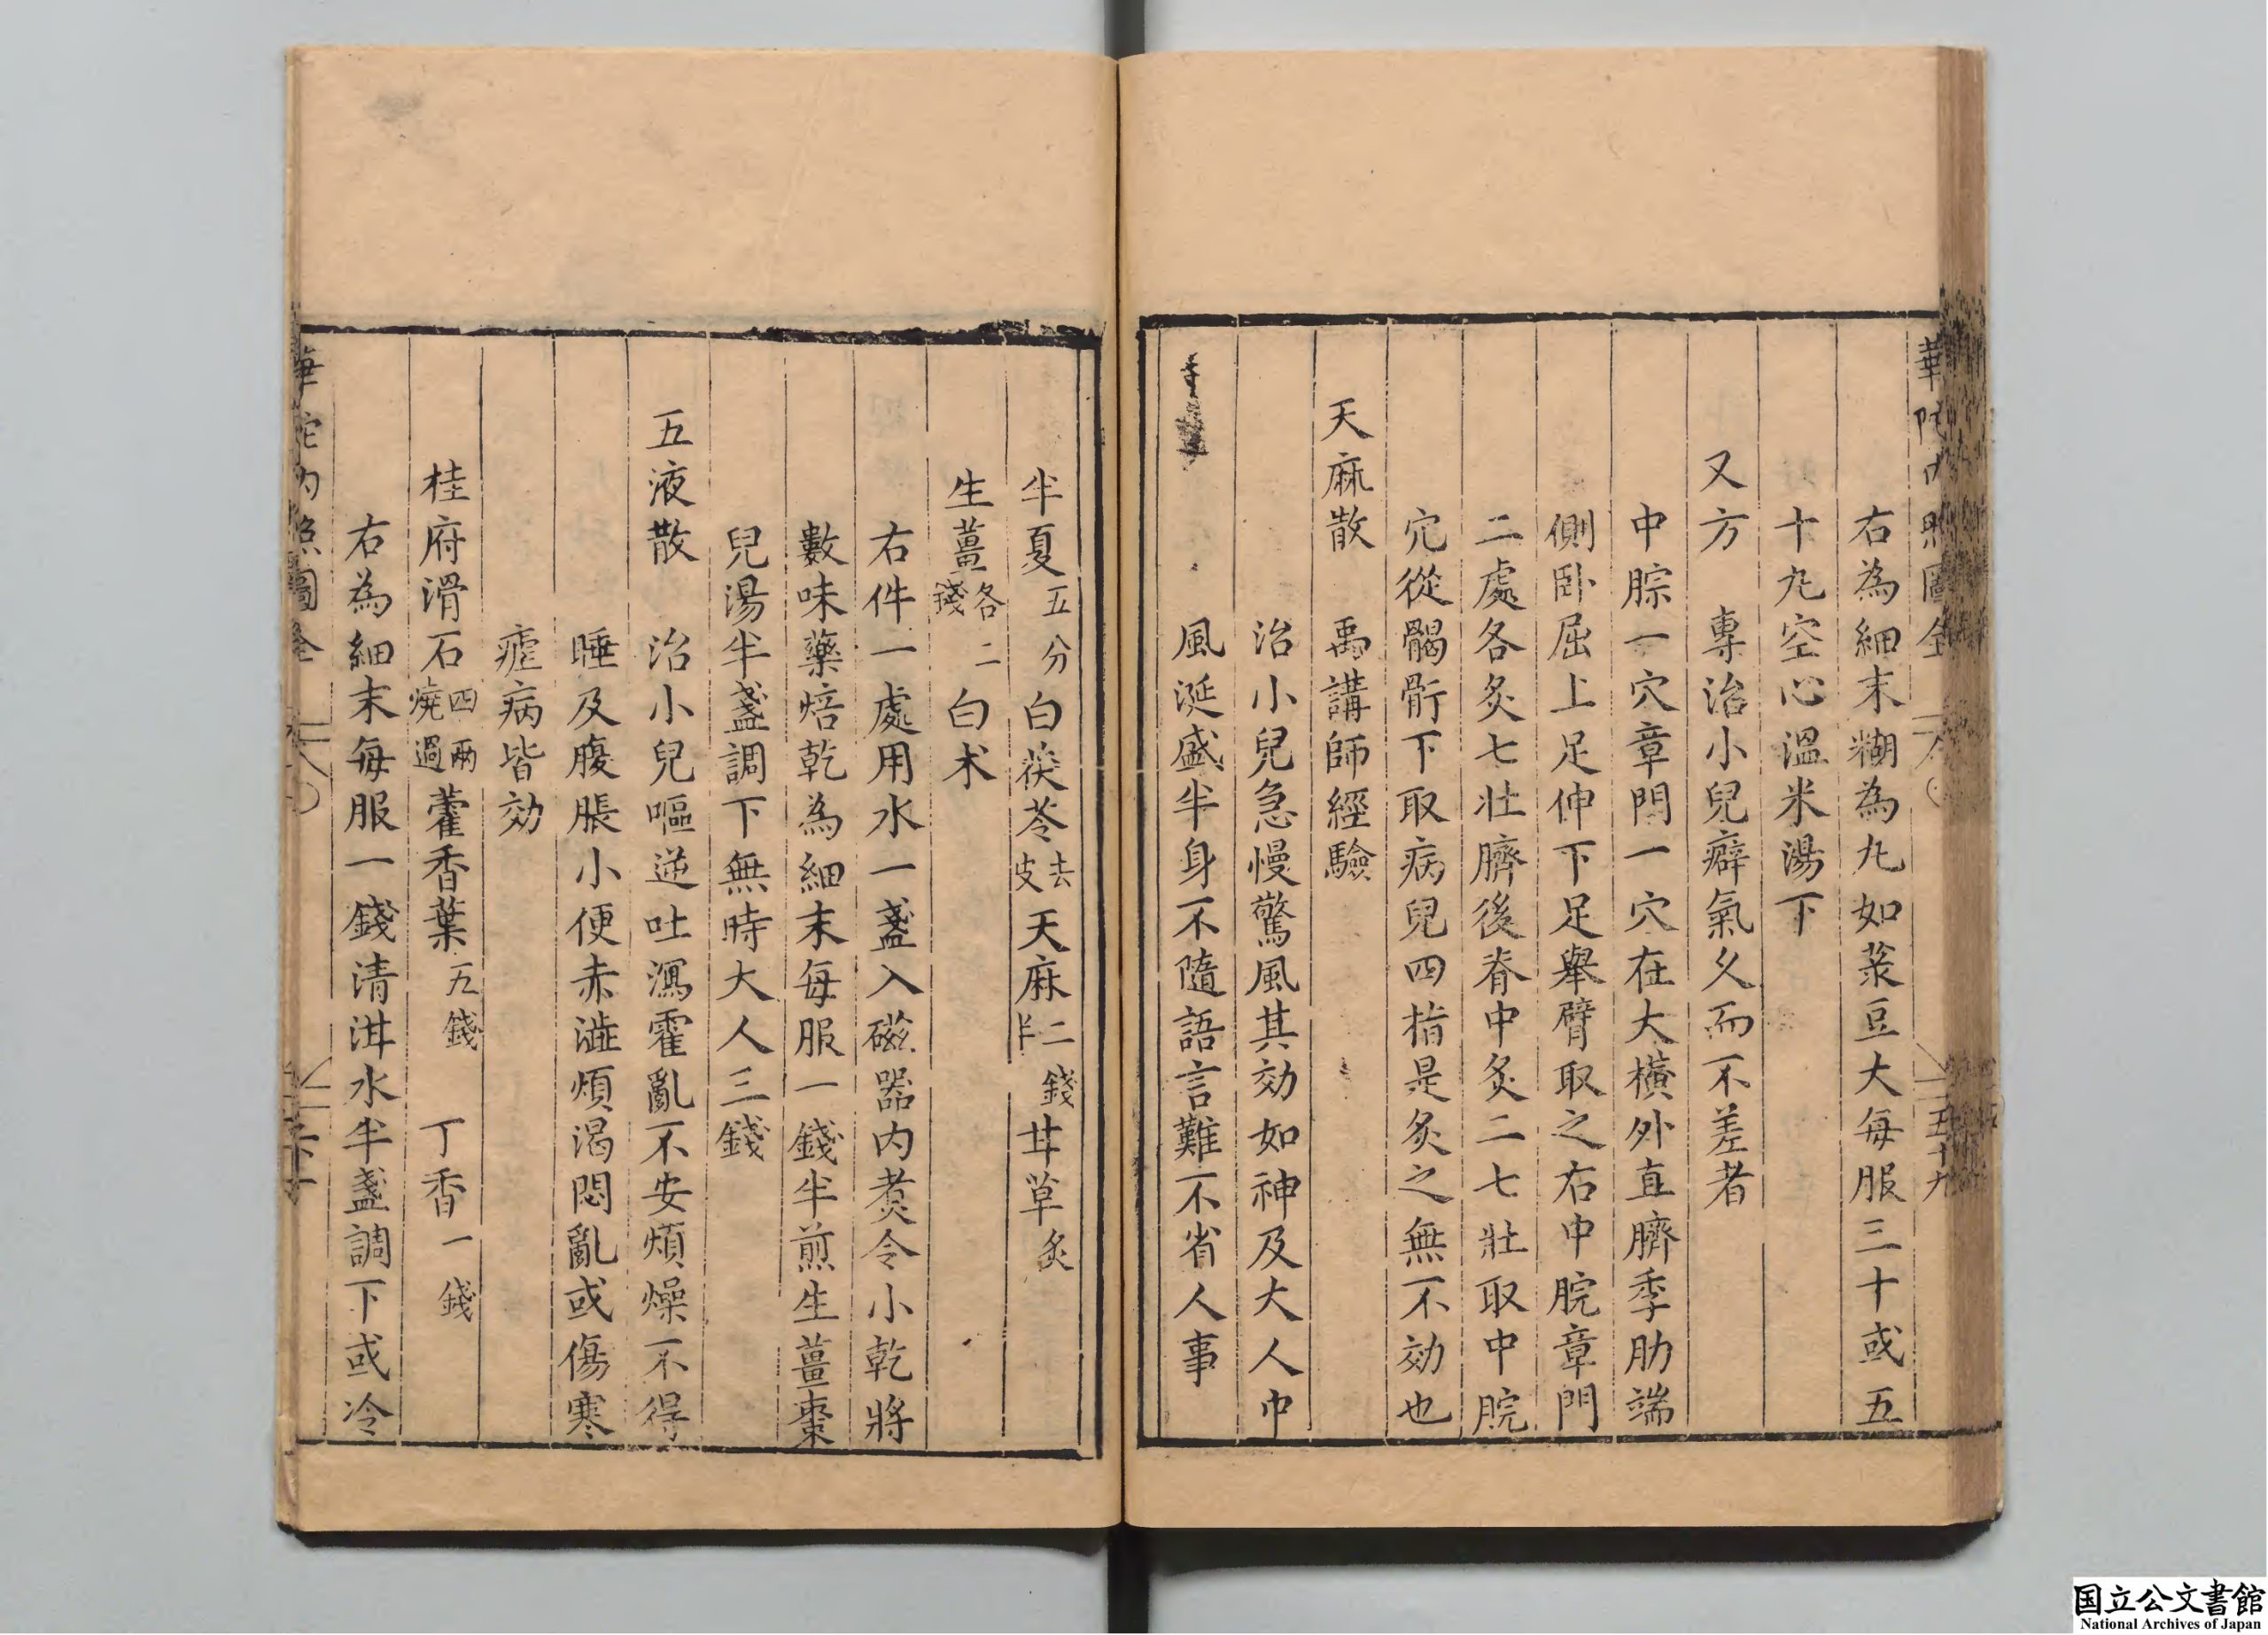 華陀内照圖全 五十九
右為細末糊為丸如菉豆大每服三十或五
十丸空心溫米湯下
又方 專治小兒癖氣久而不差者
中腙一穴章門一穴在大橫外直臍季肋端
側卧屈上足伸下足舉臂取之右中脘章門
二處各炙七壯臍後脊中炙二七壯取中脘
穴從髑骭下取病兒四指是炙之無不効也
天麻散 禹講師經驗
治小兒急慢驚風其効如神及大人中
風涎盛半身不隨語言難不省人事
半夏五分白茯苓去皮天麻二錢半甘草炙
生薑各二錢白术
右件一處用水一盞入磁器内煑令小乾將
數味藥焙乾為細末每服一錢半煎生薑棗
兒湯半盞調下無時大人三錢
五液散 治小兒嘔逆吐瀉霍亂不安煩燥不得
睡及腹脹小便赤澁煩渴悶亂或傷寒
瘧病皆効
桂府滑石四兩燒過藿香葉五錢 丁香一錢
右為細末每服一錢清泔水半盞調下或冷
華陀内照圖全 六十
国立公文書館
National Archives of Japan